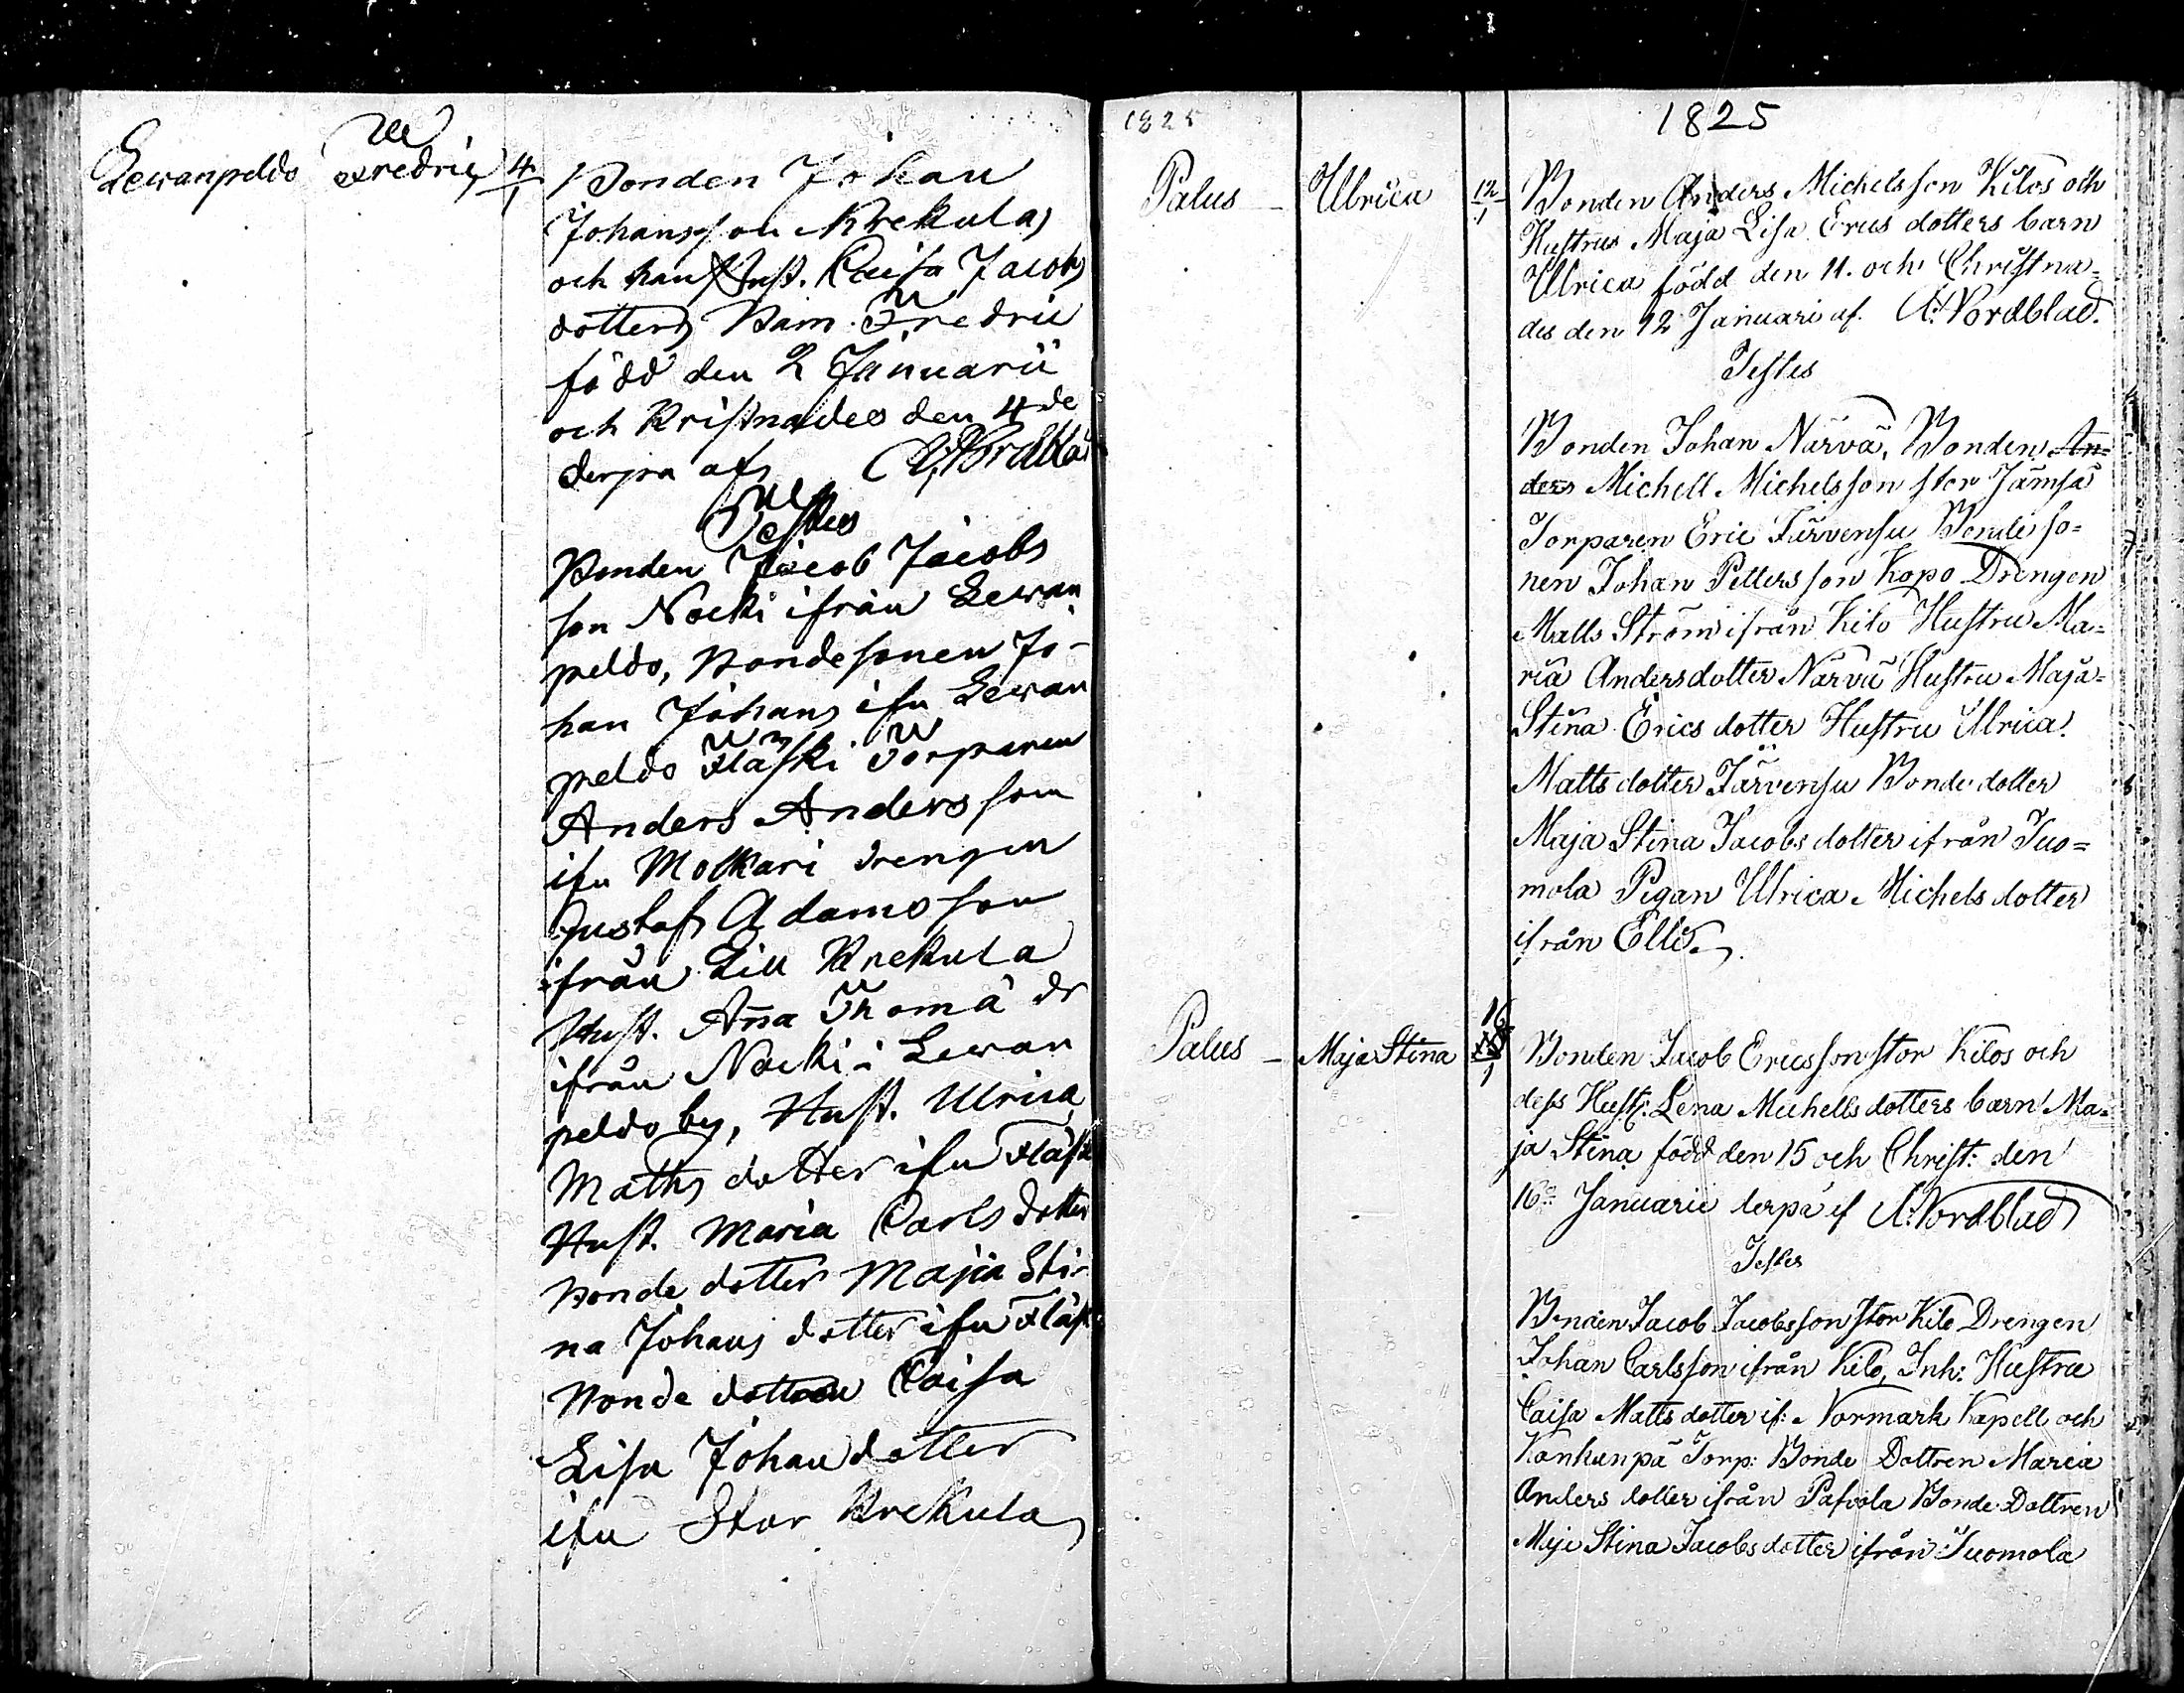 Lewanpeldo Fredric 4/1
Bonden Johan
Johansson Krekula
och hans Hust. Caisa Jacobs
dotters Barn. Fredric
född den 2 Januarii
och Kristnades den 4de
derpå af A: Nordblad
Testes
Bonden Jacob Jacobs
son Nocki ifrån Lewan
peldo, Bondesonen Jo-
han Johans ifn Lewan
peldo Fläski Torparen
Anders Andersson
ifn Molkari drengen
Gustaf Adamsson
ifrån Lill Krekula
Hust. Aña Thomä dr
ifrån Nocki i Lewan
peldo by, Hust. Ulrica
Maths dotter ifn Fläsk
Hust. Maria Carls dotter
Bonde dotter Maja Sti-
na Johans dotter ifn Fläsk
Bonde dottren Caisa
Lisa Johan dotter
ifn Stor Krekula
1825
1825
Palus - Ulrica 12/1
Bonden Anders Michelsson Kilos och
Hustrus Maja Lisa Erics dotters barn
Ulrica född den 11. och Christna=
des den 12 Januari af. A: Nordblad.
Testes
Bonden Johan Närvä, Bonden An=
ders Michell Michelsson stor Jämsä
Torparen Eric Järvensu Bonde so=
nen Johan Pettersson Kopo Drengen
Matts Ström ifrån Kilo Hustru Ma=
ria Andersdotter Närvä Hustru Maja=
Stina Erics dotter Hustru Ulrica
Matts dotter Järvensu Bonde dotter
Maja Stina Jacobs dotter ifrån Tuo=
mola Pigan Ulrica Michels dotter
ifrån Ellö.
Palus - Maja Stina 16/1
Bonden Jacob Ericsson stor Kilos och
dess Hust: Lena Michells dotters barn Ma=
ja Stina född den 15 och Christ: den
16de Januarii derpå af A: Nordblad
Testes
Bonden Jacob Jacobsson stor Kilo Drengen
Johan Carlsson ifrån Kilo, Inh: Hustru
Caisa Matts dotter if: Normark Kapell och
Kankanpä Torp: Bonde Dottren Maria
Anders dotter ifrån Pafvola Bonde Dottren
Maja Stina Jacobs dotter ifrån Tuomola